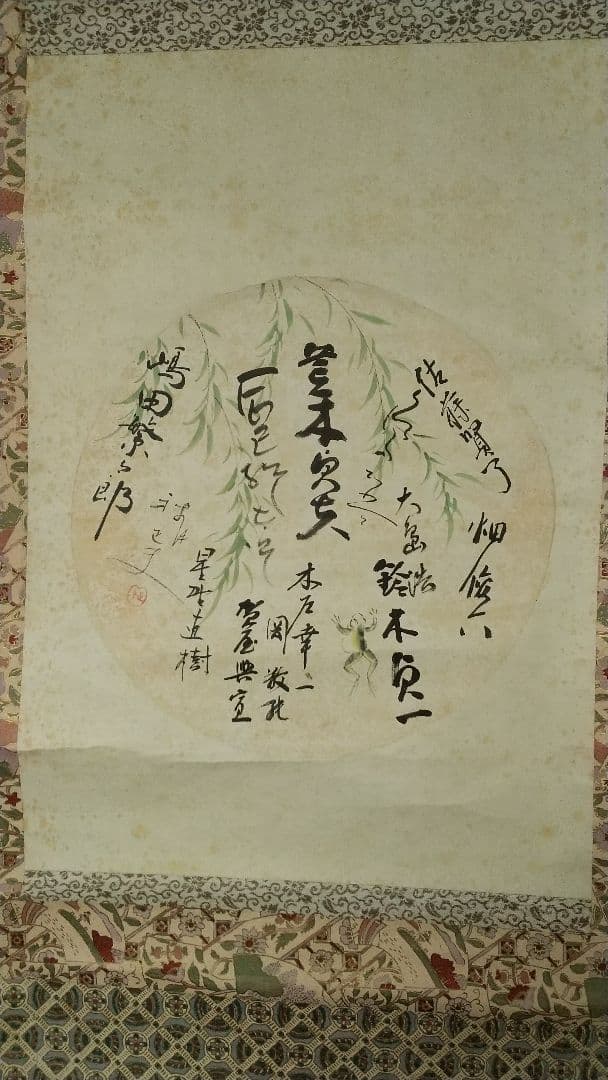 佐藤賢了
畑俊六
大島浩
鈴木貞一
荒木貞夫
木戸幸一
岡敬純
賀屋興宣
星野直樹
嶋田繁太郎